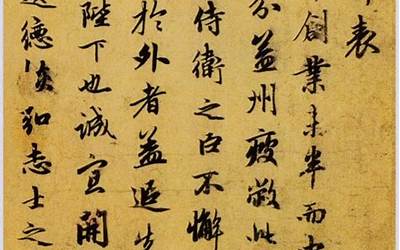 表
創業未半而
分益州疲敝此
侍衛之臣不懈
於外者蓋追先
陛下也誠宜開
遺德恢弘志士之